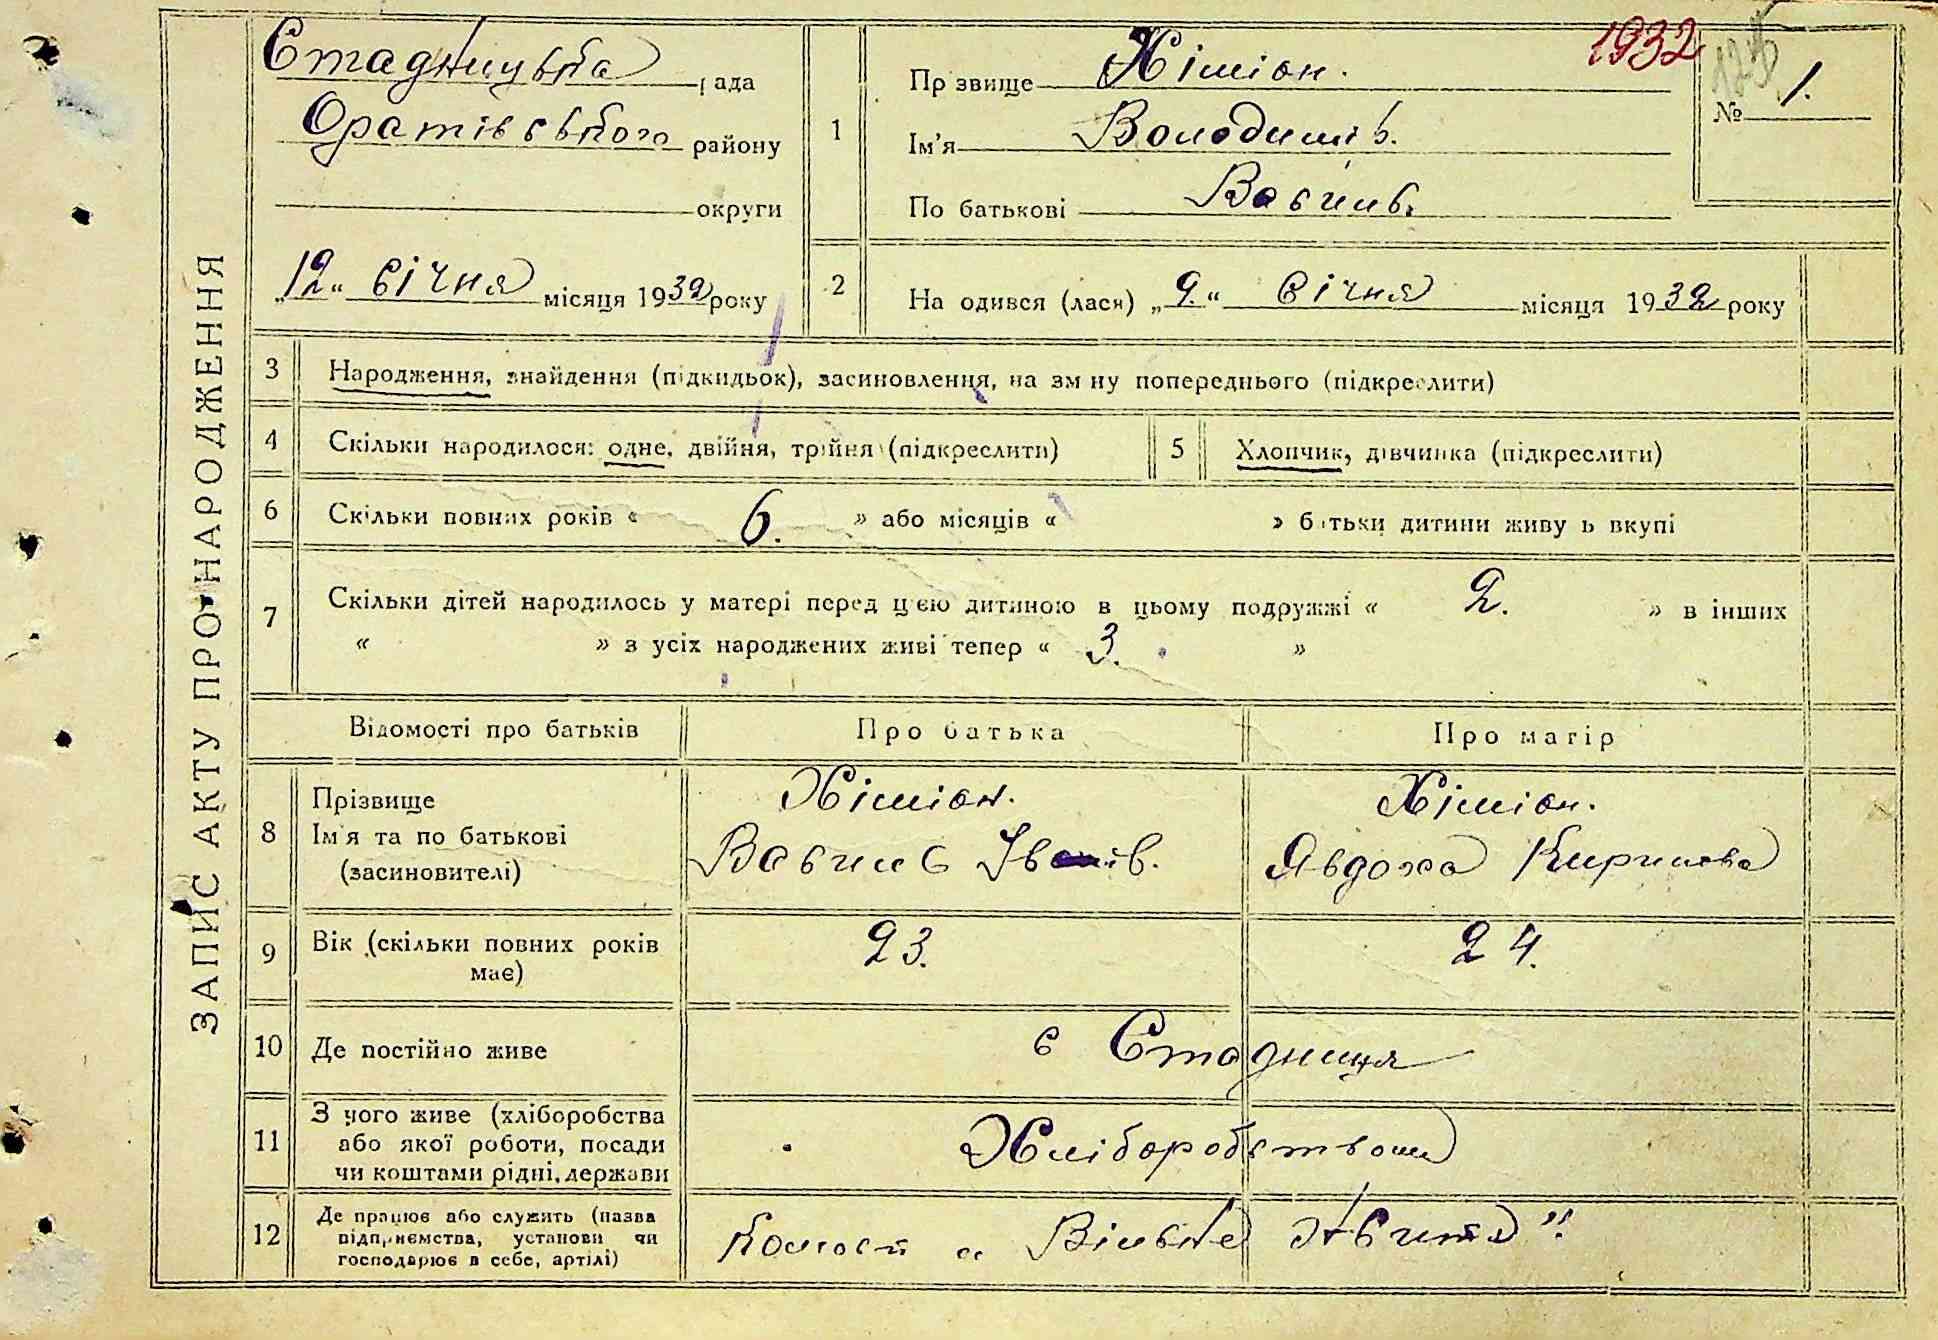 ЗАПИС АКТУ ПРО НАРОДЖЕННЯ
Стадницька рада
Оратівського району
округи
„12“ січня місяця 1932 року
1
Прізвище Хіміон.
Ім'я Володимір.
По батькові Васильв.
1932
№ 1.
2
Народився (лася) „9.“ Січня місяця 1932 року
3 Народження, знайдення (підкидьок), засиновлення, на зміну попереднього (підкреслити)
4 Скільки народилося: одне, двійня, трійня (підкреслити)
5 Хлопчик, дівчинка (підкреслити)
6 Скільки повних років « 6. » або місяців « » батьки дитини живуть вкупі
7 Скільки дітей народилось у матері перед цією дитиною в цьому подружжі « 2. » в інших
« » з усіх народжених живі тепер « 3. »
Відомості про батьків Про батька Про матір
8 Прізвище
Ім'я та по батькові
(засиновителі)
Хіміон.
Васила Івів.
Хіміон.
Явдоха Кирилова
9 Вік (скільки повних років
має)
23. 24.
10 Де постійно живе
с Стадниця
11 З чого живе (хліборобства
або якої роботи, посади
чи коштами рідні, держави
Хліборобством
12 Де працює або служить (назва
підприємства, установи чи
господарює в себе, артілі)
Колгосп „ Вільне Життя “.